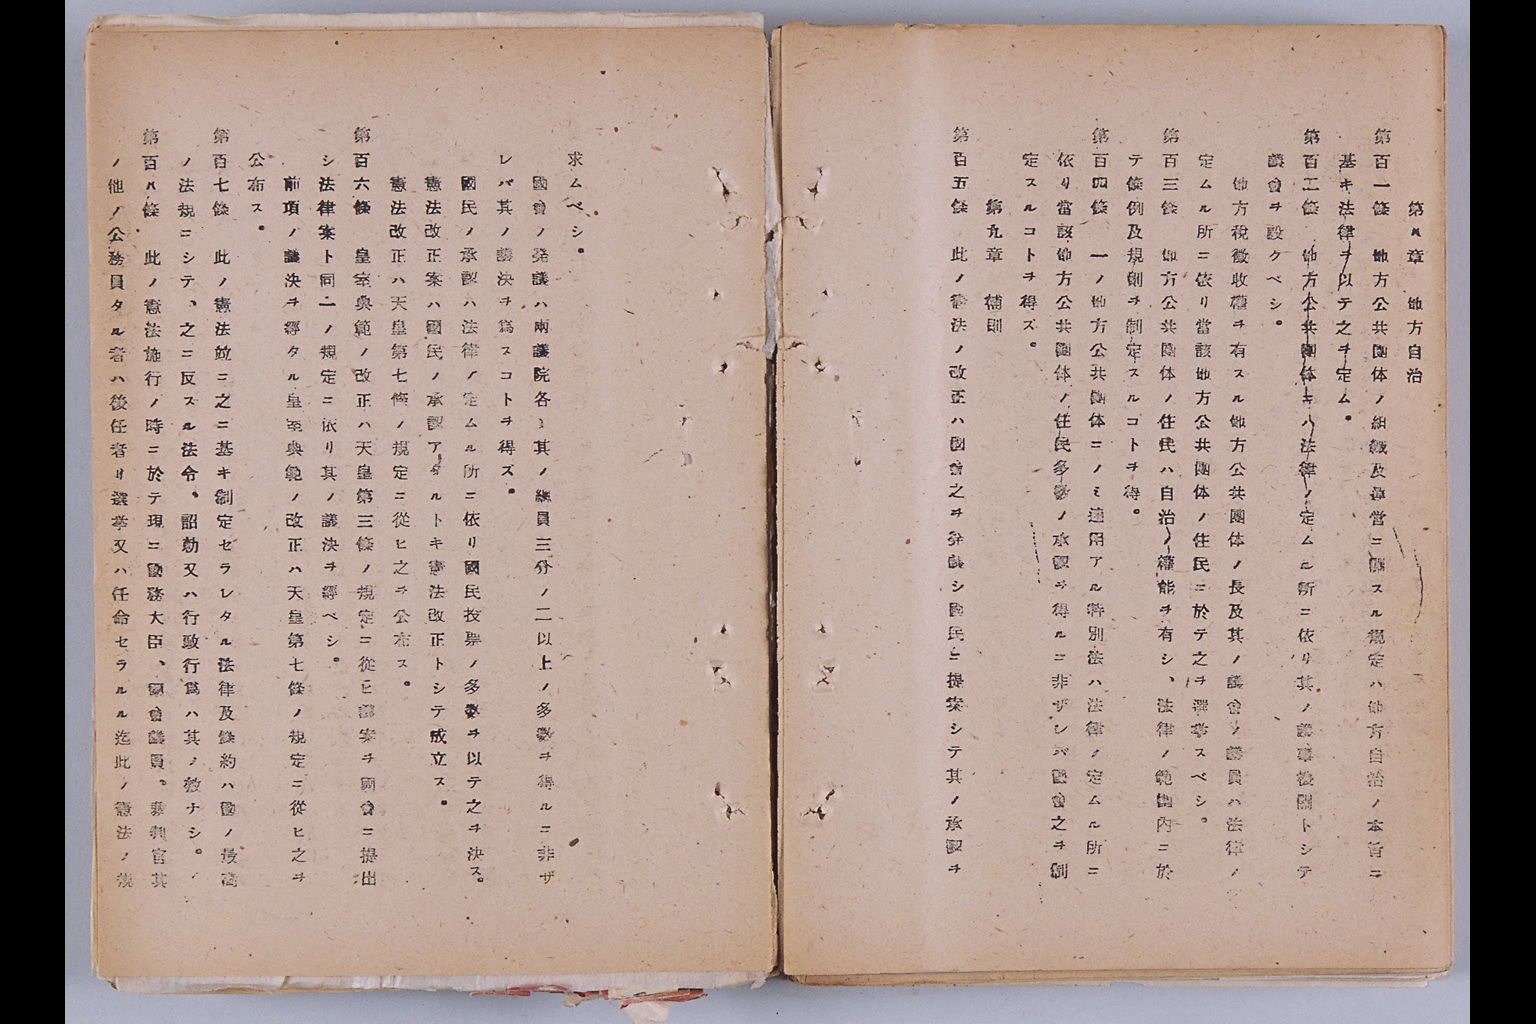 第八章　地方自治
第百一條　地方公共團体ノ組織及運営ニ關スル規定ハ地方自治ノ本旨ニ
基キ法律ヲ以テ之ヲ定ム。
第百二條　地方公共團体ニハ法律ノ定ムル所ニ依リ其ノ議事機關トシテ
議會ヲ設クベシ。
地方税徴收權ヲ有スル地方公共團体ノ長及其ノ議會ノ議員ハ法律ノ
定ムル所ニ依リ當該地方公共團体ノ住民ニ於テ之ヲ選挙スベシ。
第百三條　地方公共團体ノ住民ハ自治ノ權能ヲ有シ、法律ノ範圍内ニ於
テ條例及規則ヲ制定スルコトヲ得。
第百四條　一ノ地方公共團体ニノミ適用アル特別法ハ法律ノ定ムル所ニ
依リ當該地方公共團体ノ住民多數ノ承認ヲ得ルニ非ザレバ國會之ヲ制
定スルコトヲ得ズ。
第九章　補則
第百五條　此ノ憲法ノ改正ハ國會之ヲ発議シ國民ニ提案シテ其ノ承認ヲ
求ムベシ。
國會ノ発議ハ兩議院各〻其ノ總員三分ノ二以上ノ多数ヲ得ルニ非ザ
レバ其ノ議決ヲ爲スコトヲ得ズ。
國民ノ承認ハ法律ノ定ムル所ニ依リ國民投票ノ多數ヲ以テ之ヲ決ス。
憲法改正案ハ國民ノ承認アタルトキ憲法改正トシテ成立ス。
憲法改正ハ天皇第七條ノ規定ニ從ヒ之ヲ公布ス。
第百六條　皇室典範ノ改正ハ天皇第三條ノ規定ニ從ヒ議案ヲ國會ニ提出
シ法律案ト同一ノ規定ニ依リ其ノ議決ヲ經ベシ。
前項ノ議決ヲ經タル皇室典範ノ改正ハ天皇第七條ノ規定ニ從ヒ之ヲ
公布ス。
第百七條　此ノ憲法竝ニ之ニ基キ制定セラレタル法律及條約ハ國ノ最高
ノ法規ニシテ、之ニ反スル法令、詔勅又ハ行政行爲ハ其ノ效ナシ。
第百八條　此ノ憲法施行ノ時ニ於テ現ニ國務大臣、國會議員、裁判官其
ノ他ノ公務員タル者ハ後任者ガ選挙又ハ任命セラルル迄此ノ憲法ノ規